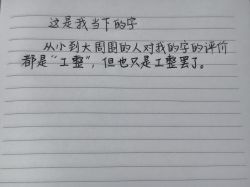 这是我当下的字
从小到大周围的人对我的字的评价
都是“工整”，但也只是工整罢了。